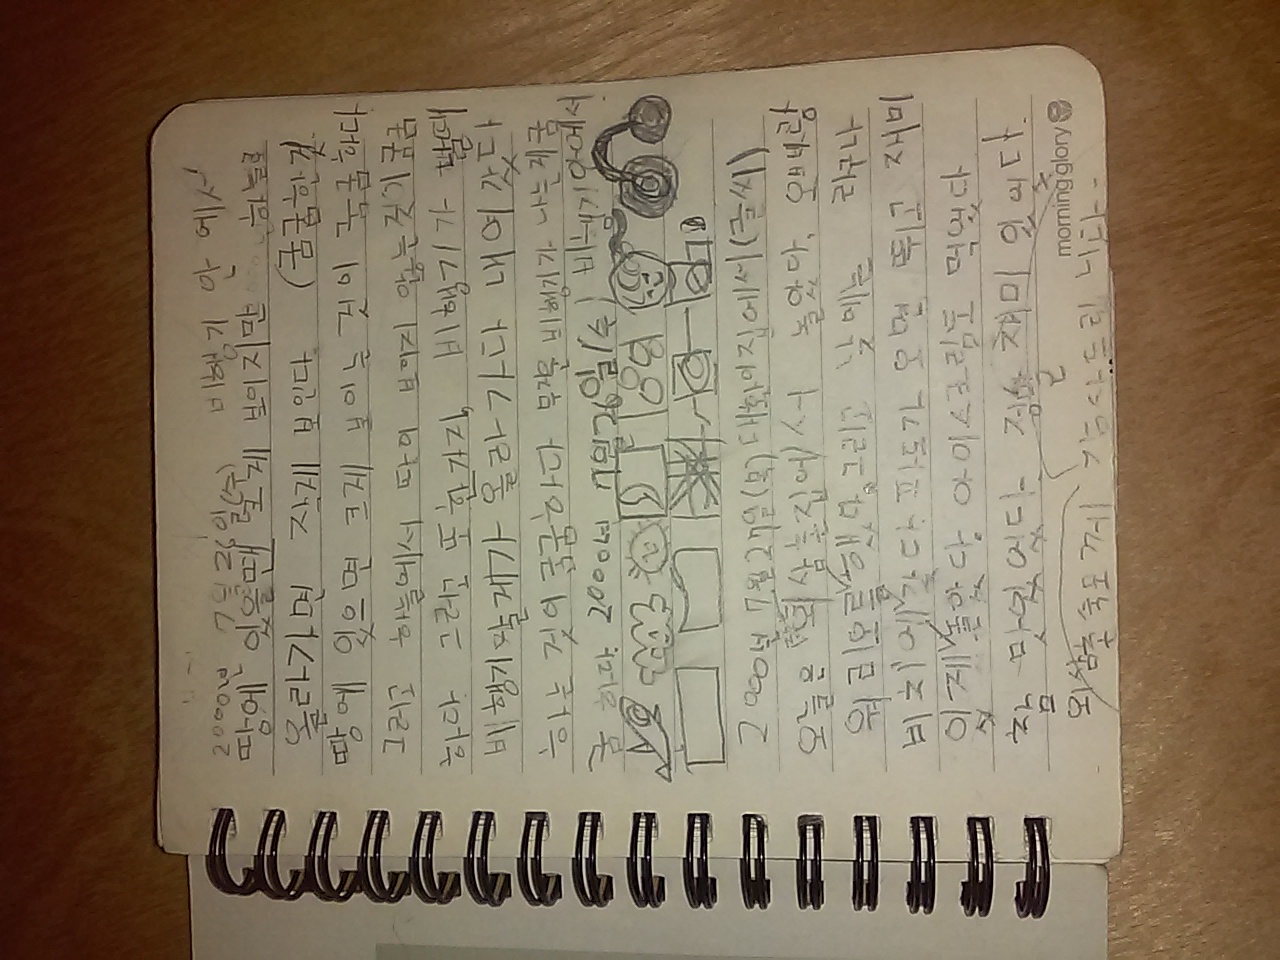 2000년 7월 26일(수) 비행기 안 에서
땅에 있을땐 크게 보이지만 하늘로
올라가면 작게 보인다. (궁굼한것
땅에 있으면 크게 보이는 것이 궁굼하다
그리고 하늘에서 땅이 보이지 않는것기 궁굼
하다. 그리고 또 한가지, 비행기가 뜰때
비행기 가 올라 가다 내여 갔다
하는 것이 궁굼하다 무거운 비행기가 나는게 궁
굼 하다. 2000년 7월 26일(수) 비행기 안에서
2000년 7월 27일(목) 대환이집에서(글씨)
오늘은 외삼촌집에서 놀았다. 오빠랑
했다. 그리고 낮에는 라구나
비치에 갔다. 파도가 오면 뛰고 재미
있게 놀았다. 아이스크림도 먹었다
참 맛있었다. 정말 재미 있었다.
morning glory
외삼촌 숙모 께 감사드립 니다.